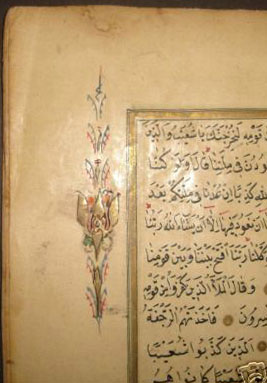 قومه لنخرجنك يا شعيب والذين
ودن في ملتنا قال اولو كنا
لله كذبا ان عدنا في ملتكم بعد
ا ان نعود فيها الا ان يشاء الله ربنا
كلنا ربنا افتح بيننا وبين قومنا
وقال الملا الذين كفروا من قومه
سرون فاخذتهم الرجفة
الذين كذبوا شعيبا
شعيبا كانوا هم